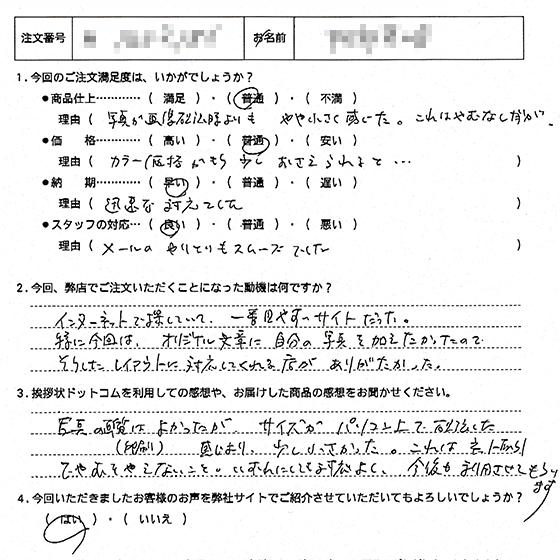 注文番号 お名前
1.今回のご注文満足度は、いかがでしょうか?
●商品仕上…………( 満足 )・( 普通 )・( 不満 )
理由( 写真が画像確認時よりも やや小さく感じた。これはやむなしだが、
●価 格…………( 高い )・( 普通 )・( 安い )
理由( カラー価格がもう少しおさえられると… )
●納 期…………( 早い )・( 普通 )・( 遅い )
理由( 迅速な対応でした )
●スタッフの対応…( 良い )・( 普通 )・( 悪い )
理由( メールのやりとりもスムーズでした )
2.今回、弊店でご注文いただくことになった動機は何ですか?
インターネットで探していて、一番見やすいサイトだった。
特に今回は、オリジナル文章に自分の写真を加えたかったので
そうしたレイアウトに対応してくれる店がありがたかった。
3.挨拶状ドットコムを利用しての感想や、お届けした商品の感想をお聞かせください。
写真の画質はよかったが、サイズがパソコン上で確認した
(印刷) 感じより、少し小さかった。これは
今後も利用させてもらいます
4.今回いただきましたお客様のお声を弊社サイトでご紹介させていただいてもよろしいでしょうか?
( はい )・( いいえ )